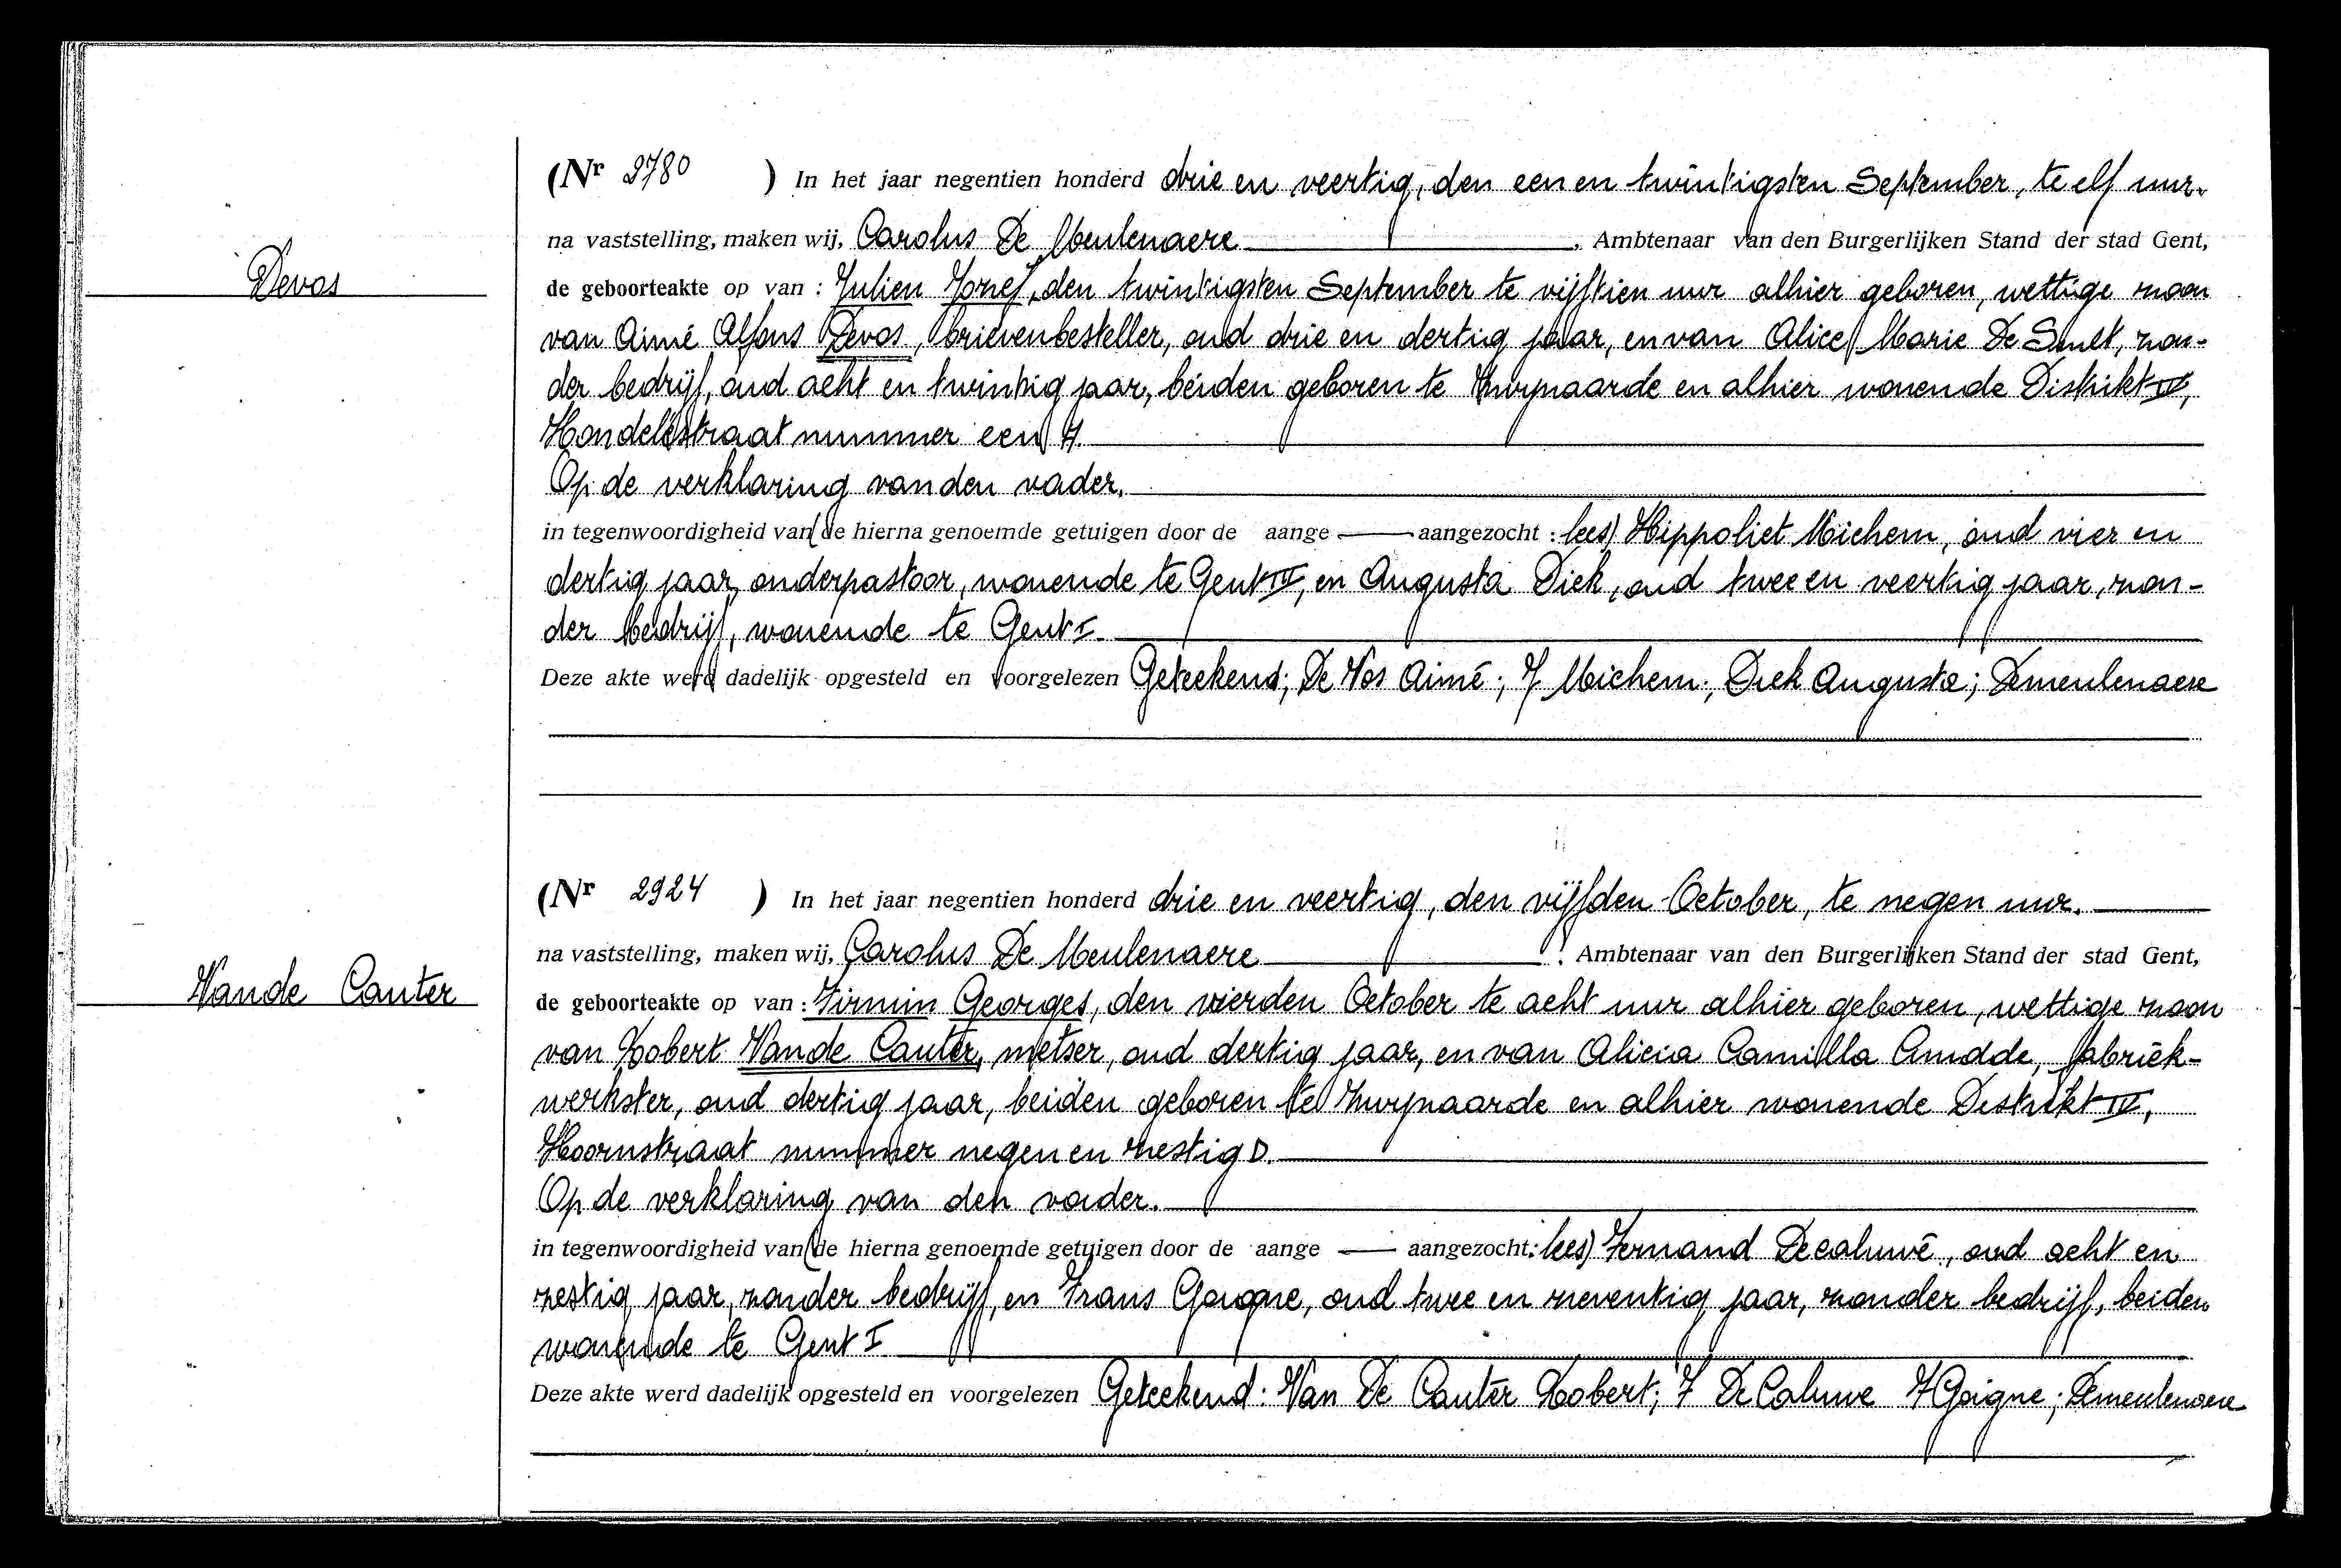 (Nr 2780 ) In het jaar negentien honderd drie en veertig, den een en twintigsten September, te elf uur.
na vaststelling, maken wij, Carolus De Meulenaere , Ambtenaar van den Burgerlijken Stand der stad Gent,
Devos
de geboorteakte op van : Julien Jozef, den twintigsten September te vijftien uur alhier geboren, wettige zoon
van Aimé Alfons Devos, brievenbesteller, oud drie en dertig jaar, en van Alice Marie De Smet, zon-
der bedrijf, oud acht en twintig jaar, beiden geboren te Zwijnaarde en alhier wonende Distrikt IV,
straat nummer een
Op de verklaring van den vader.
in tegenwoordigheid van (de hierna genoemde getuigen door de aange aangezocht : lees) Hippoliet Michem, oud vier en
dertig jaar, onderpastoor, wonende te Gent IV, en Augusta Diek, oud twee en veertig jaar, zon-
der bedrijf, wonende te Gent I.
Deze akte werd dadelijk opgesteld en voorgelezen Geteekend; De Vos Aimé; Michem; Diek Augusta; Demeulenaere
(Nr 2924 ) In het jaar negentien honderd drie en veertig, den vijfden October, te negen uur.
na vaststelling, maken wij, Carolus De Meulenaere , Ambtenaar van den Burgerlijken Stand der stad Gent,
Vande Cauter
de geboorteakte op van : Firmin Georges, den vierden October te acht uur alhier geboren, wettige zoon
van Robert Vande Cauter, metser, oud dertig jaar, en van Alicia Camilla fabriek-
werkster, oud dertig jaar, beiden geboren te Zwijnaarde en alhier wonende Distrikt IV,
Hoornstraat nummer negen en zestig D.
Op de verklaring van den vader.
in tegenwoordigheid van (de hierna genoemde getuigen door de aange aangezocht : lees) Fernand Decaluwé, oud acht en
zestig jaar, zonder bedrijf, en Frans Goigne, oud twee en zeventig jaar, zonder bedrijf, beiden
wonende te Gent I
Deze akte werd dadelijk opgesteld en voorgelezen Geteekend: Van De Cauter Robert; F De Caluwe F Goigne; Demeulenaere